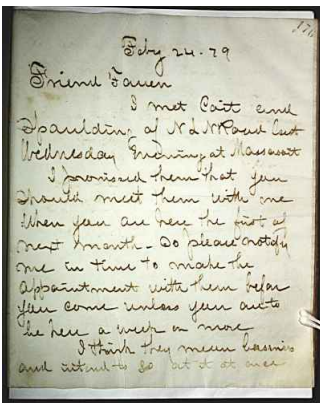 Feby 24-79
Friend
I met Cait and
Spaulding of N & N Road last
Wednesday Evening at
I promised them that you
should meet them with me
when you are here the first of
next month - Do please notify
me in time to make the
appointment with them before
you come unless you are to
be here a week or more
I think they mean business
and intend to go at it at once